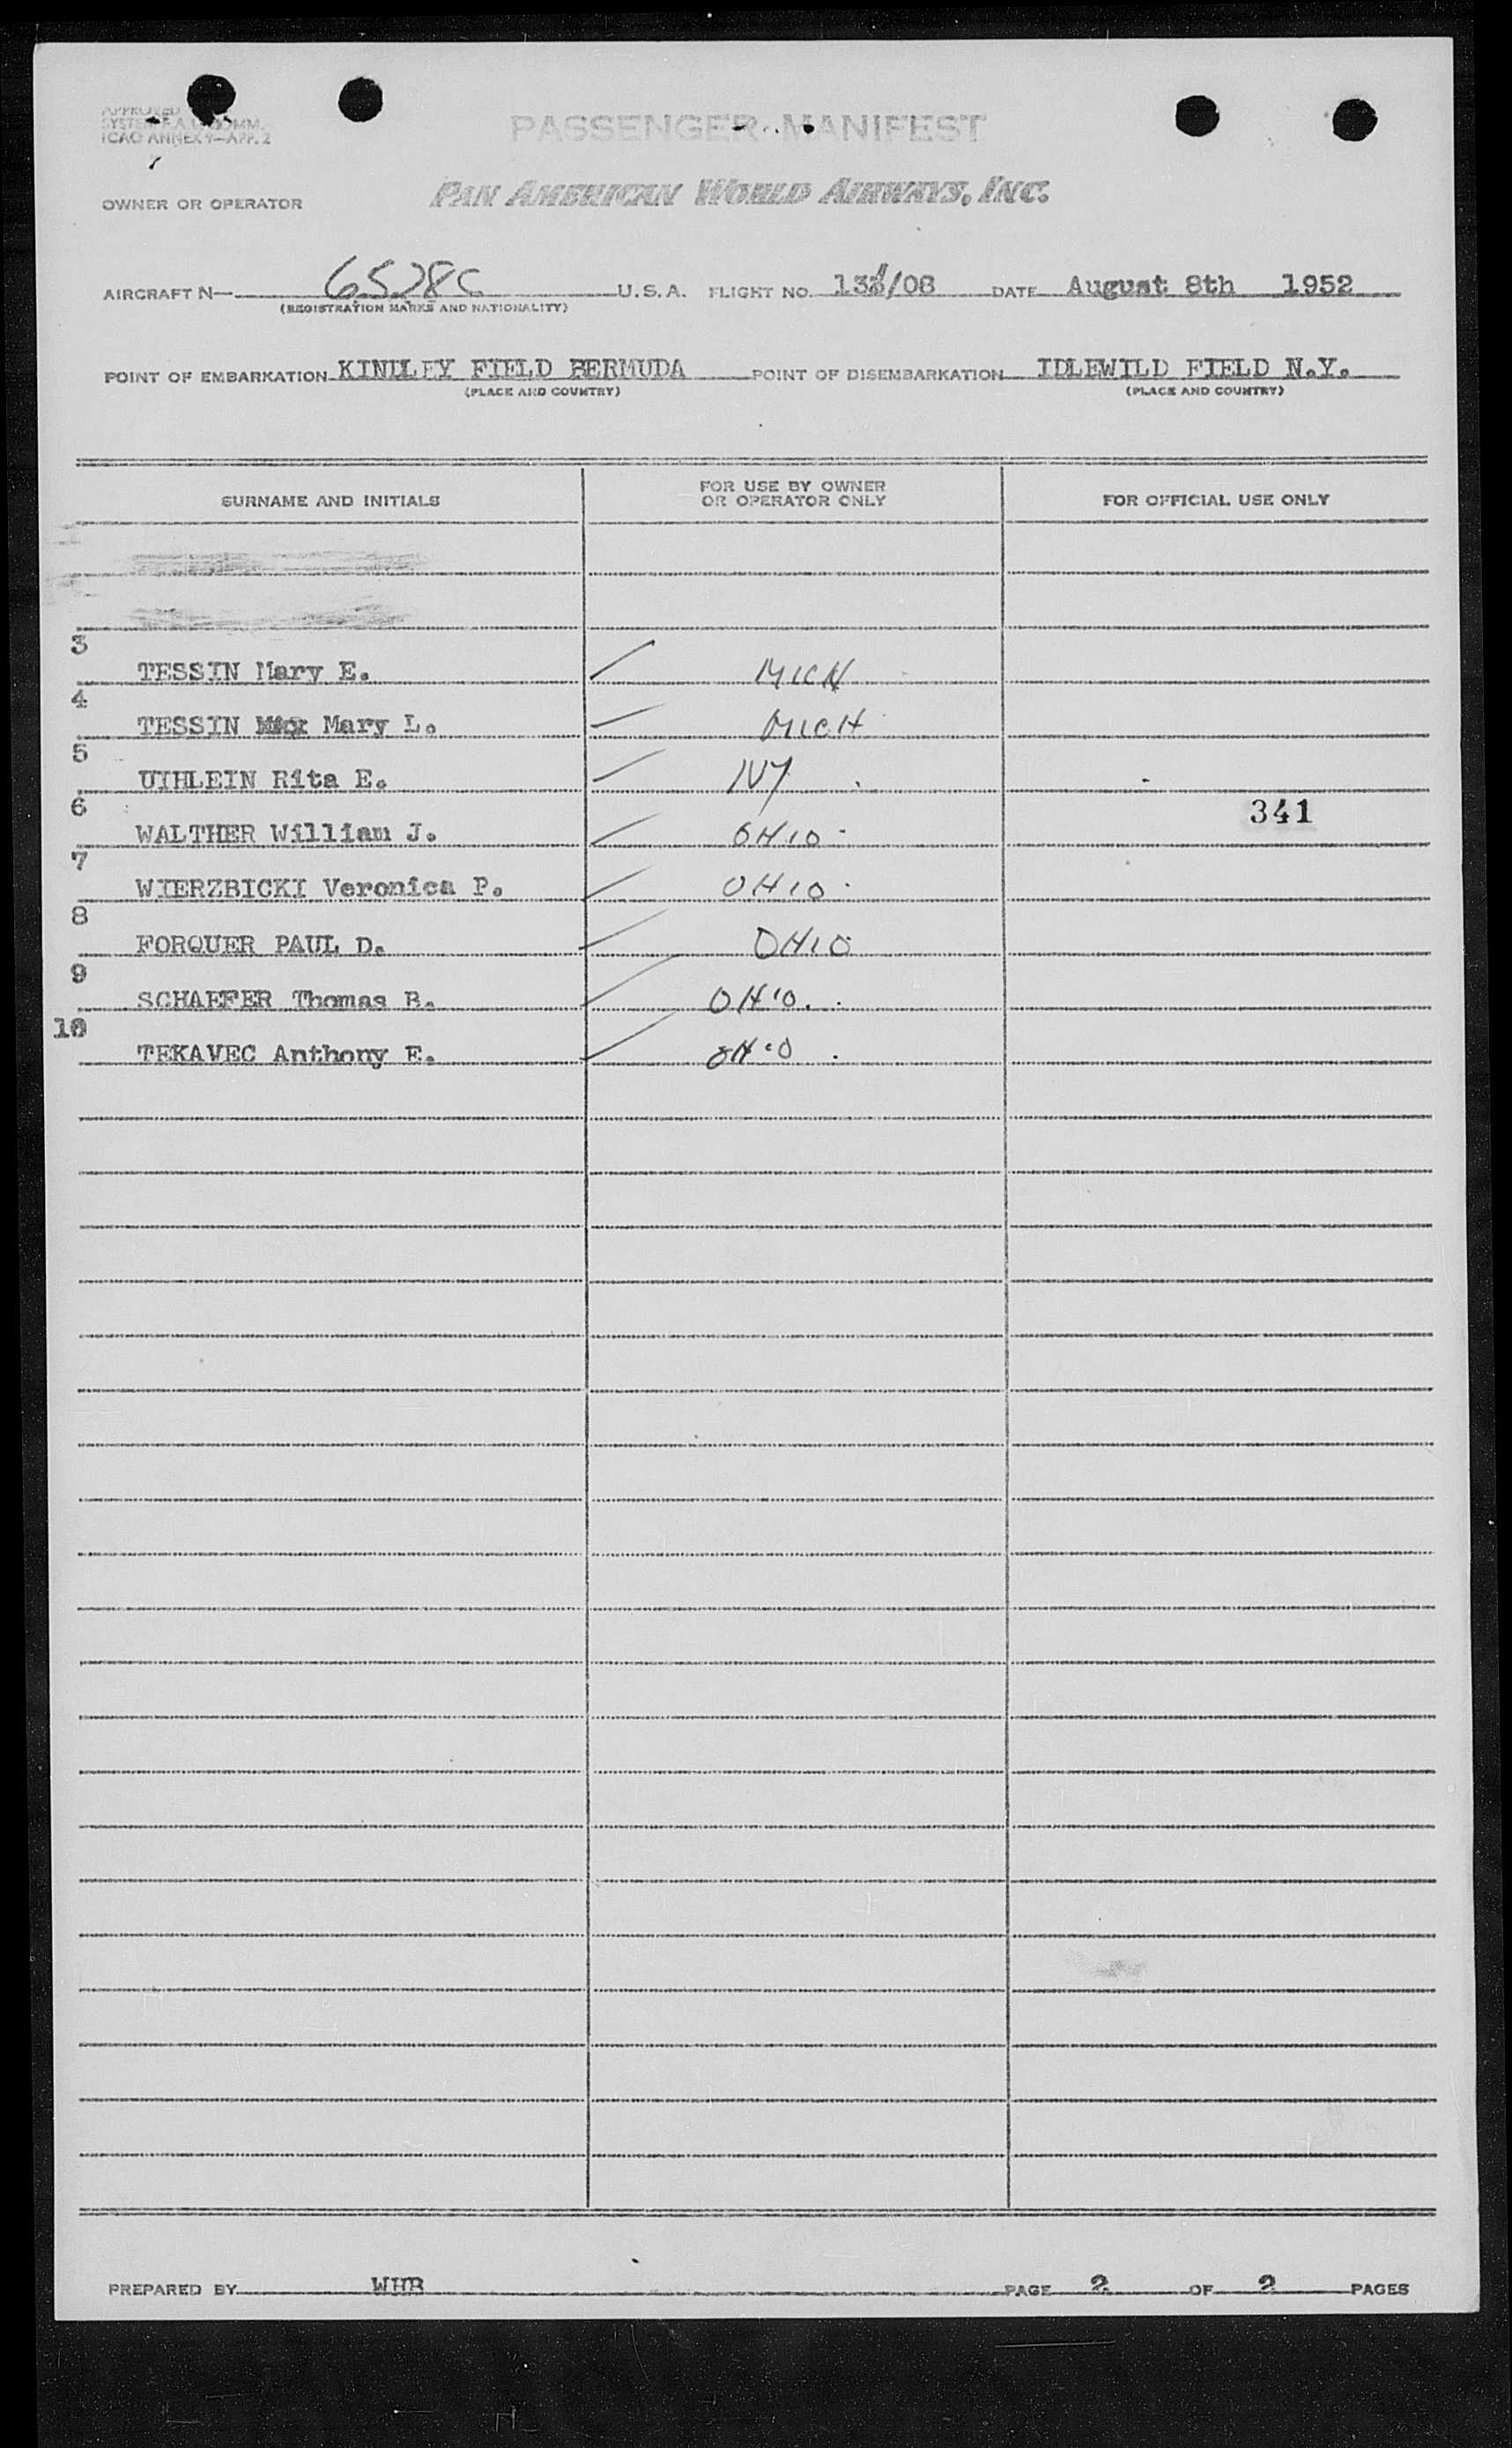 APPROVED
SYSTEM F.A.L. COMM.
ICAO ANNEX 9—APP. 2
PASSENGER MANIFEST
OWNER OR OPERATOR PAN AMERICAN WORLD AIRWAYS, INC.
AIRCRAFT N— 6528C U.S.A. FLIGHT NO. /08 DATE August 8th 1952
(REGISTRATION MARKS AND NATIONALITY)
POINT OF EMBARKATION KINDLEY FIELD BERMUDA POINT OF DISEMBARKATION IDLEWILD FIELD N.Y.
(PLACE AND COUNTRY) (PLACE AND COUNTRY)
SURNAME AND INITIALS FOR USE BY OWNER OR OPERATOR ONLY FOR OFFICIAL USE ONLY
3 TESSIN Mary E. MICH
4 TESSIN Mary L. MICH
5 UIHLEIN Rita E. NY
341
6 WALTHER William J. OHIO
7 WIERZBICKI Veronica P. OHIO
8 FORQUER PAUL D. OHIO
9 SCHAEFER Thomas B. OHIO.
10 TEKAVEC Anthony E. OHIO
PREPARED BY WHB PAGE 2 OF 2 PAGES